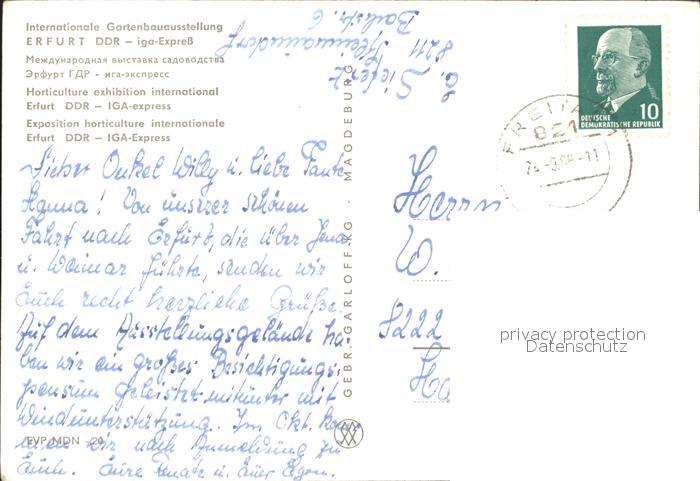 Internationale Gartenbauausstellung
ERFURT DDR – iga-Expreß
Международная выставка садоводства
Эрфурт ГДР - ига-экспресс
Horticulture exhibition international
Erfurt DDR – IGA-express
Exposition horticulture internationale
Erfurt DDR – IGA-Express
Lieber Onkel Willy u. liebe Tante
Hanna! Von unserer schönen
Fahrt nach Erfurt, die über Jena
u. Weimar führte, senden wir
Euch recht herzliche Grüße.
Auf dem Ausstellungsgelände ha-
ben wir ein großes Besichtigungs-
pensum geleistet mitunter mit
Windunterstützung. Im Okt. kom-
men wir nach Anmeldung zu
Euch. Eure Renate u. Euer Egon.
EVP MDN -20
GEBR. GARLOFF KG · MAGDEBURG
E. Siefert
8211
Bachstr. 6
10
DEUTSCHE
DEMOKRATISCHE REPUBLIK
FREITAL
821
Herrn
W.
8222
Ha
privacy protection
Datenschutz